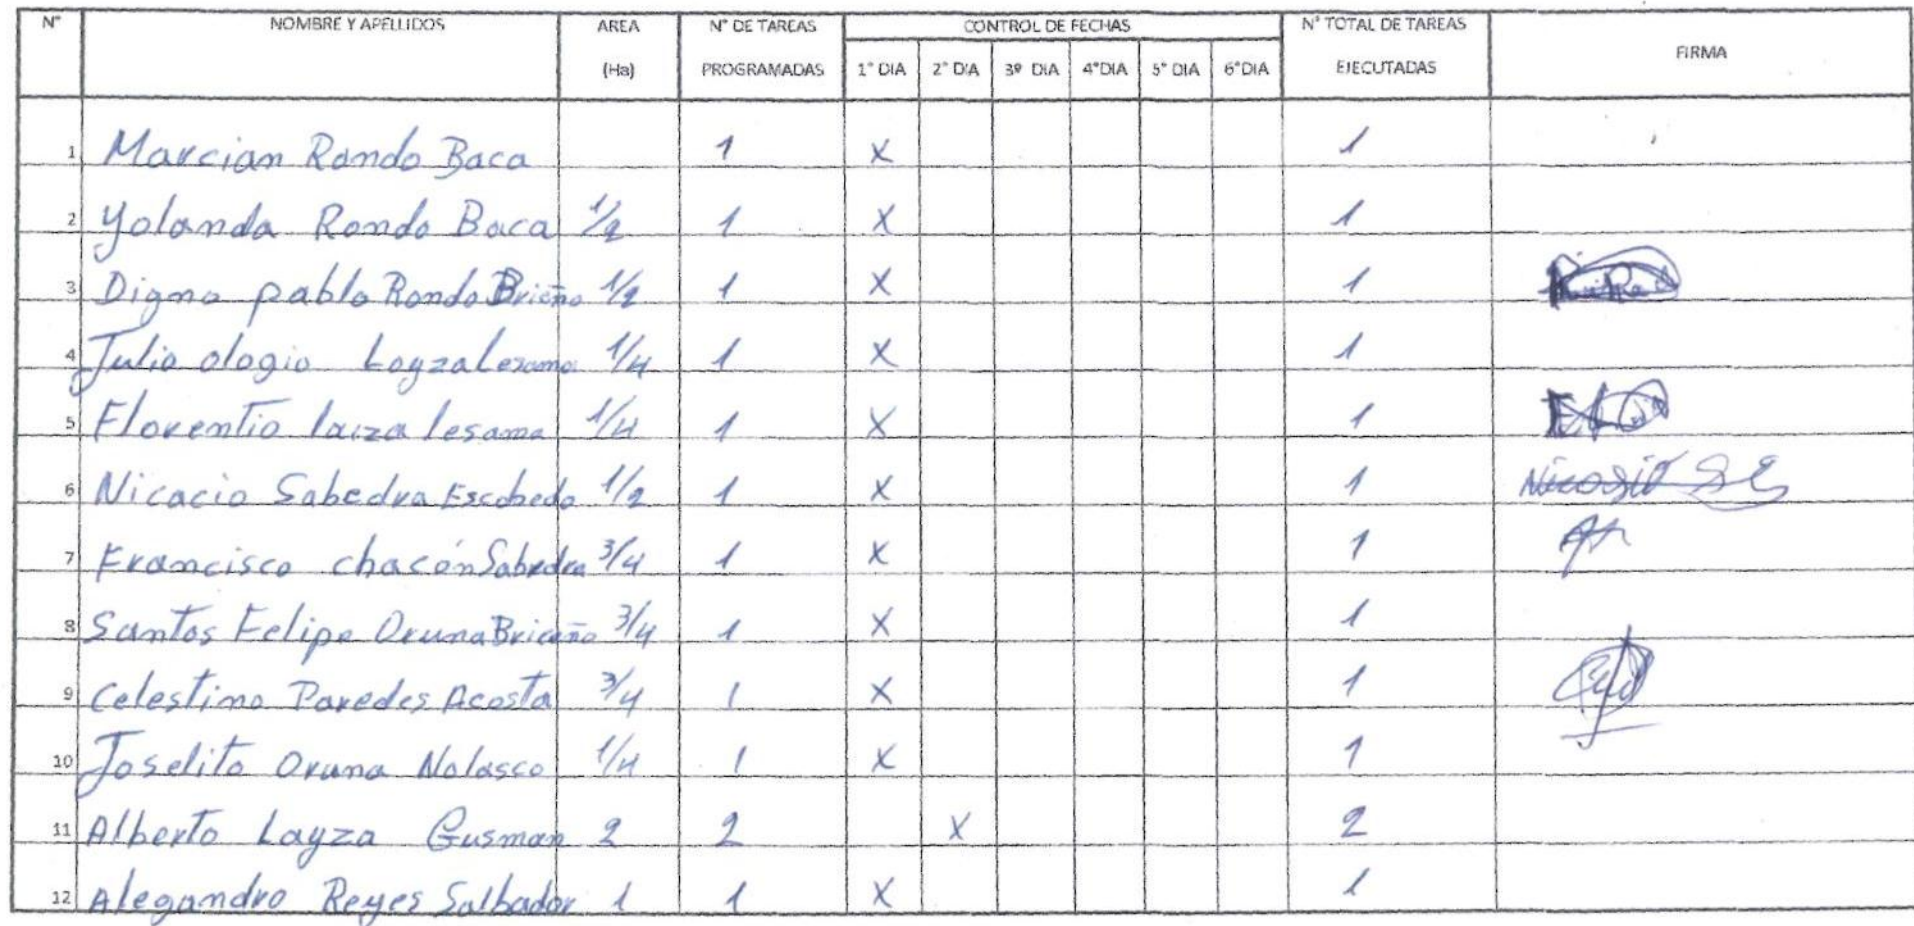 N° NOMBRE Y APELLIDOS AREA N° DE TAREAS CONTROL DE FECHAS N° TOTAL DE TAREAS FIRMA
(Ha) PROGRAMADAS 1° DIA 2° DIA 3º DIA 4°DIA 5° DIA 6°DIA EJECUTADAS
1 Marcian Rondo Baca 1 X 1
2 Yolanda Rondo Baca 1/2 1 X 1
3 Digna pablo Rondo Briceño 1/2 1 X 1
4 Julio ologio Loyza Lesama 1/4 1 X 1
5 Florentio laiza lesama 1/4 1 X 1
6 Nicacio Sabedra Escobedo 1/2 1 X 1
7 Francisco chacón Sabedra 3/4 1 X 1
8 Santos Felipe Oruna Briceño 3/4 1 X 1
9 Celestino Paredes Acosta 3/4 1 X 1
10 Joselito Oruna Nolasco 1/4 1 X 1
11 Alberto Layza Gusman 2 2 X 2
12 Alegandro Reyes Salbador 1 1 X 1